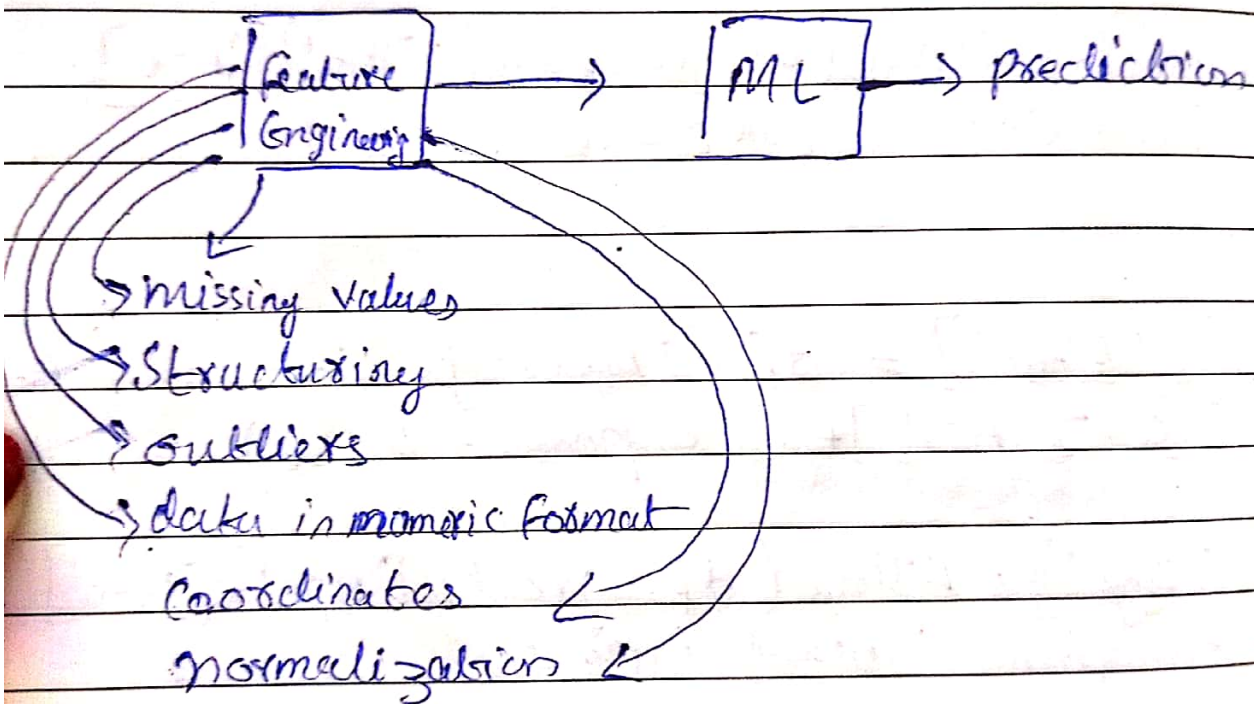 Feature
Engineering
ML
prediction
missing values
Structuring
outliers
data in numeric format
Coordinates
normalization